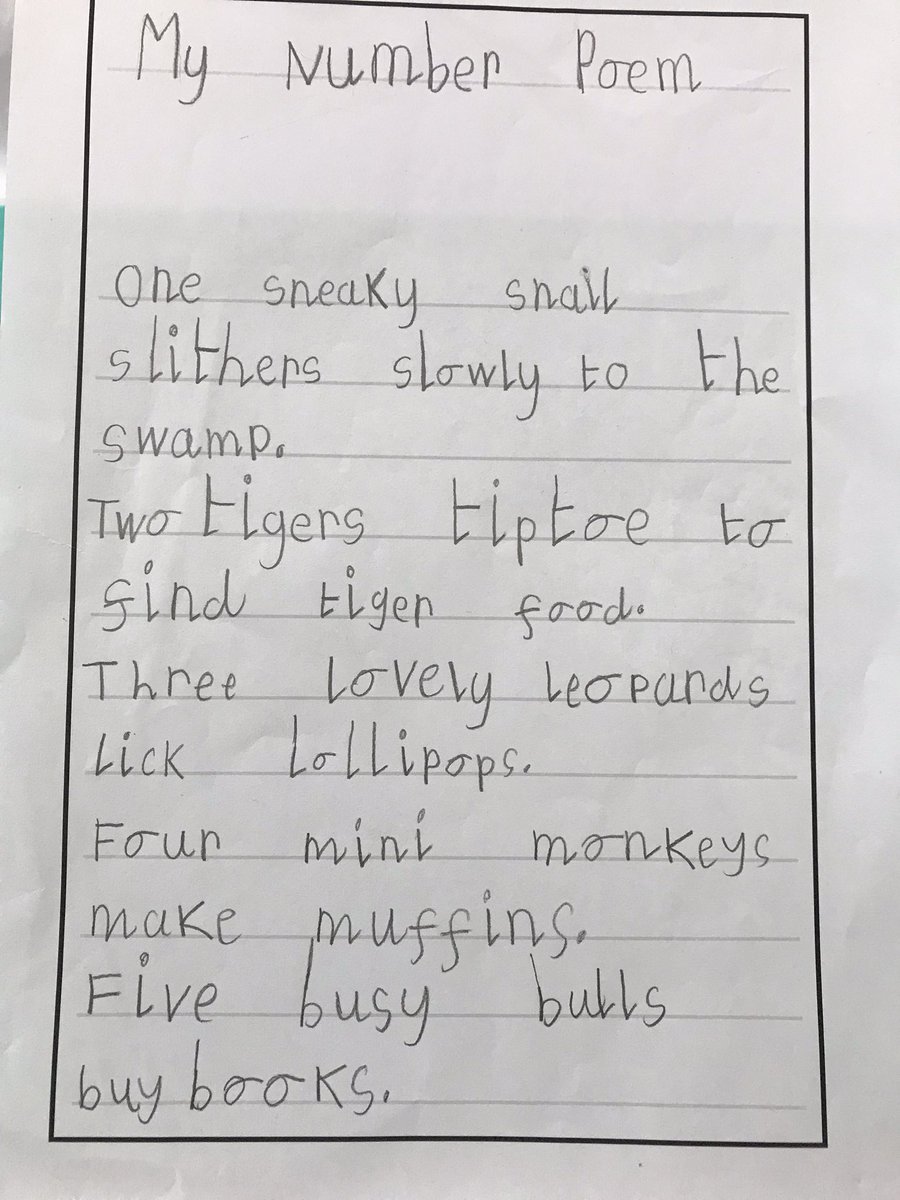 My Number Poem
One sneaky snail
slithers slowly to the
swamp.
Two tigers tiptoe to
find tiger food.
Three lovely leopards
lick lollipops.
Four mini monkeys
make muffins.
Five busy bulls
buy books.